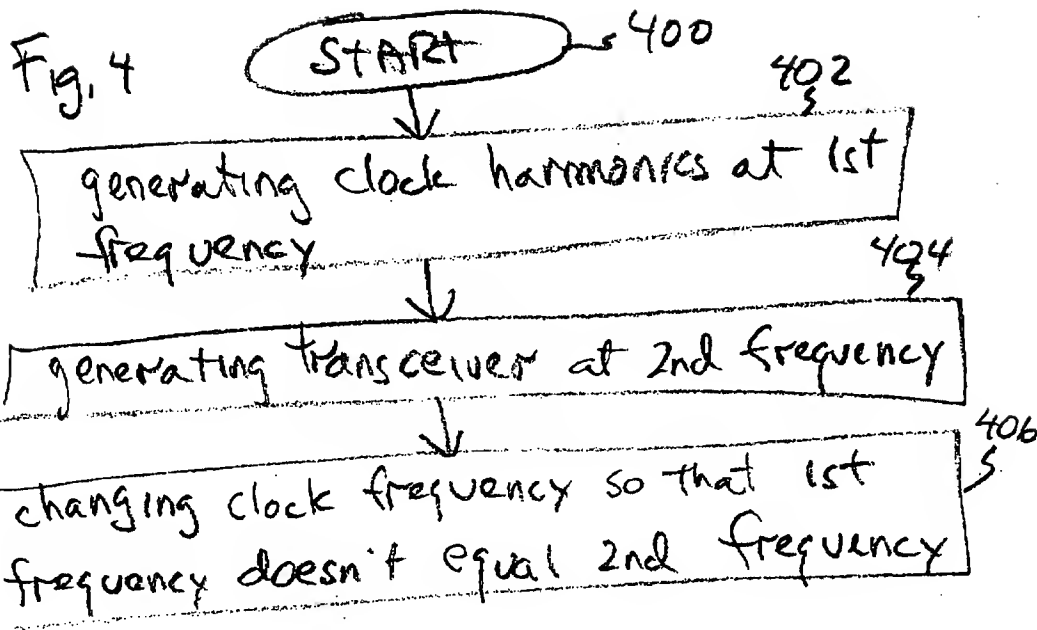 Fig. 4
START
400
402
generating clock harmonics at 1st
frequency
404
generating transceiver at 2nd frequency
406
changing clock frequency so that 1st
frequency doesn't equal 2nd frequency